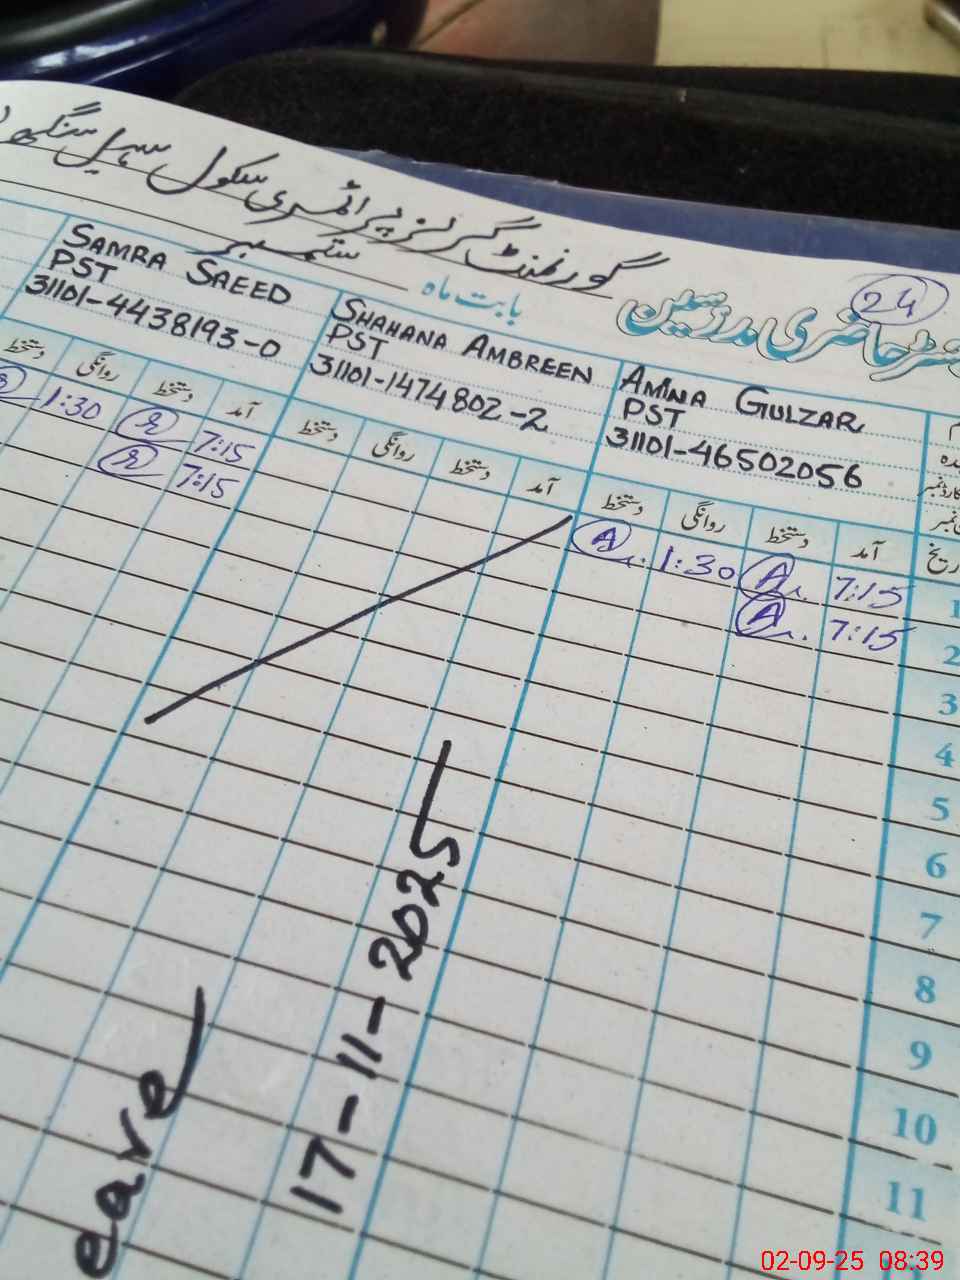 گورنمنٹ گرلز پرائمری سکول سہیل سنگھ
ستمبر
بابت ماہ
حاضری مدرسین
24
SAMRA SAEED
PST
31101-4438193-0
SHAHANA AMBREEN
PST
31101-1474802-2
AMINA GULZAR
PST
31101-46502056
آمد دستخط روانگی دستخط
آمد دستخط روانگی دستخط
آمد دستخط روانگی دستخط
1 7:15 A 1:30 A 7:15 1:30
2 7:15 A 7:15
3
4
5
6
7
8
9
10
11
17-11-2025
eave
02-09-25 08:39